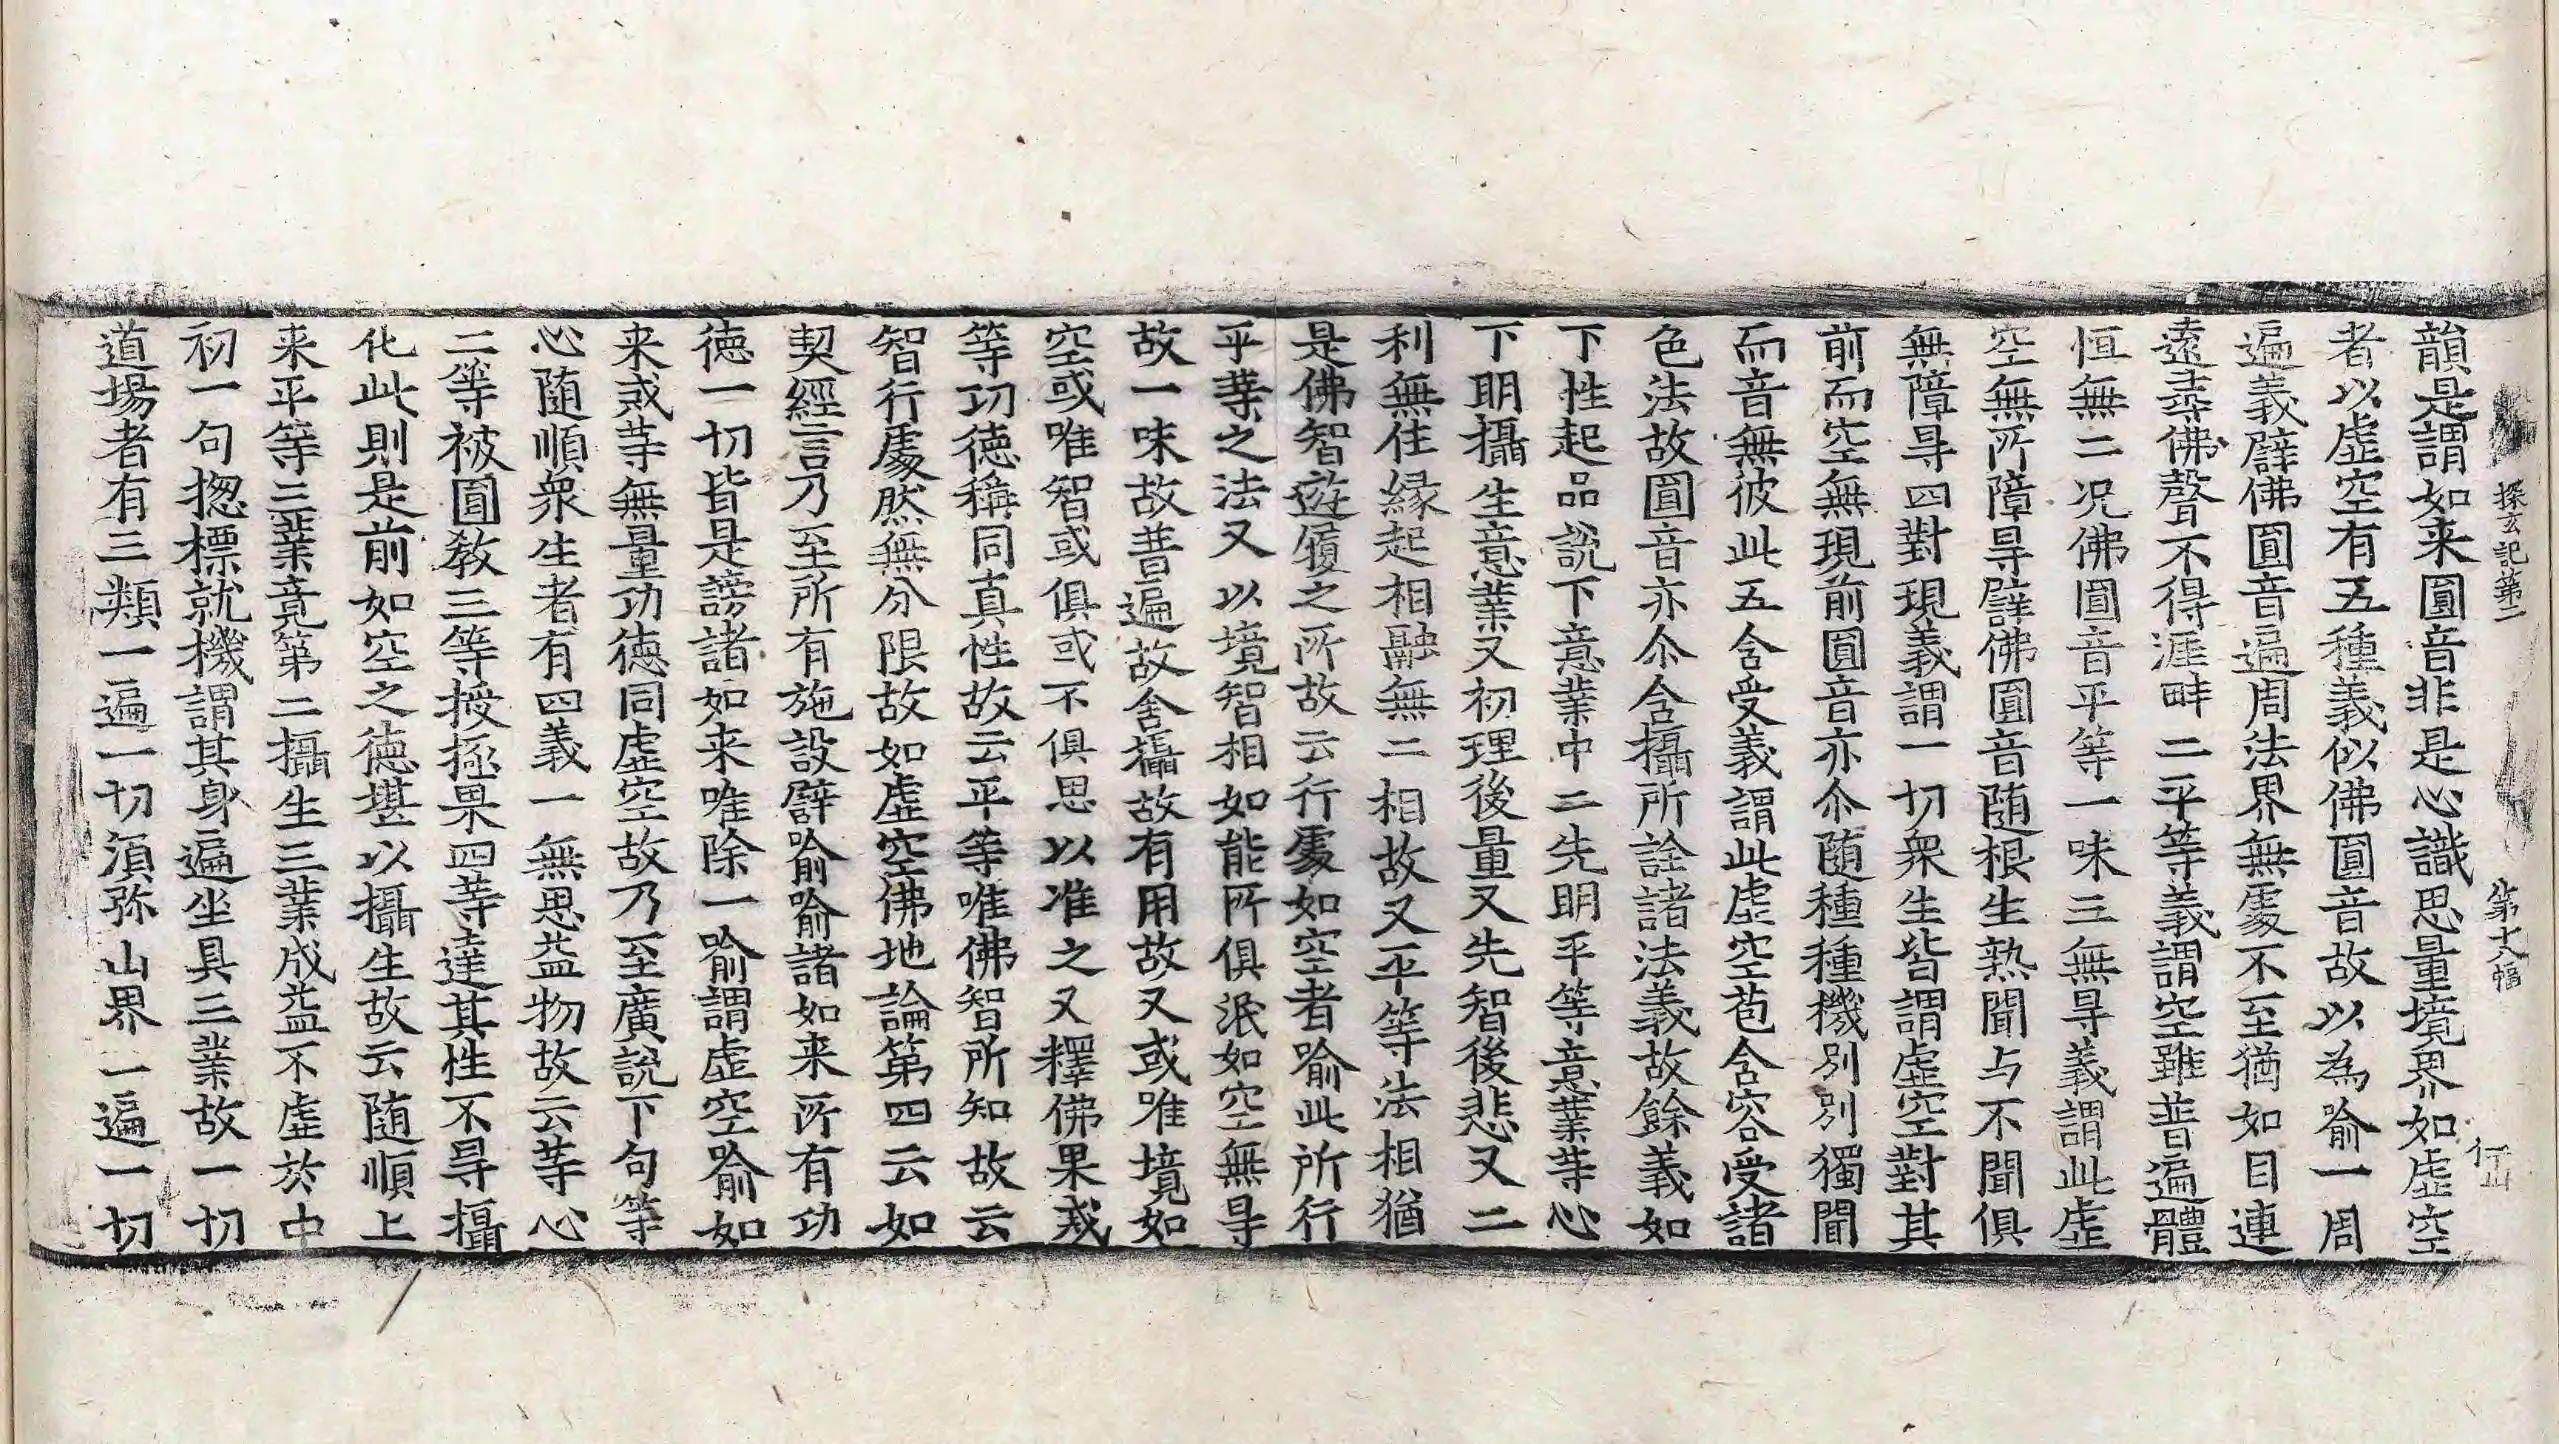 探玄記第二 第十八幅 行山
韻是謂如来圓音非是心識思量境界如虛空
者以虛空有五種義似佛圓音故以為喻一周
遍義辟佛圓音遍周法界無處不至猶如目連
遠尋佛聲不得涯畔二平等義謂空雖普遍體
恒無二況佛圓音平等一味三無㝵義謂此虛
空無所障㝵辟佛圓音随根生熟聞与不聞俱
無障㝵四對現義謂一切衆生皆謂虛空對其
前而空無現前圓音亦尒随種種機別別獨聞
而音無彼此五含受義謂此虛空苞含容受諸
色法故圓音亦尒含攝所詮諸法義故餘義如
下性起品說下意業中二先明平等意業等心
下明攝生意業又初理後量又先智後悲又二
利無住緣起相融無二相故又平等法相猶
是佛智遊履之所故云行處如空者喻此所行
乎業之法又以境智相如能所俱泯如空無㝵
故一味故普遍故含攝故有用故又或唯境如
空或唯智或俱或不俱思以准之又釋佛果或
等切德稱同真性故云平等唯佛智所知故云
智行處然無分限故如虛空佛地論第四云如
契經言乃至所有施設辟喻喻諸如来所有功
徳一切皆是謗諸如来唯除一喻謂虛空喻如
来戒等無量功徳同虛空故乃至廣說下句等
心随順衆生者有四義一無思益物故云等心
二等被圓教三等授極果四等達其性不㝵攝
化此則是前如空之徳堪以攝生故云随順上
来平等三業竟第二攝生三業成益不虛於中
初一句揔標就機謂其身遍坐具三業故一切
道場者有三類一遍一切湏弥山界二遍一切